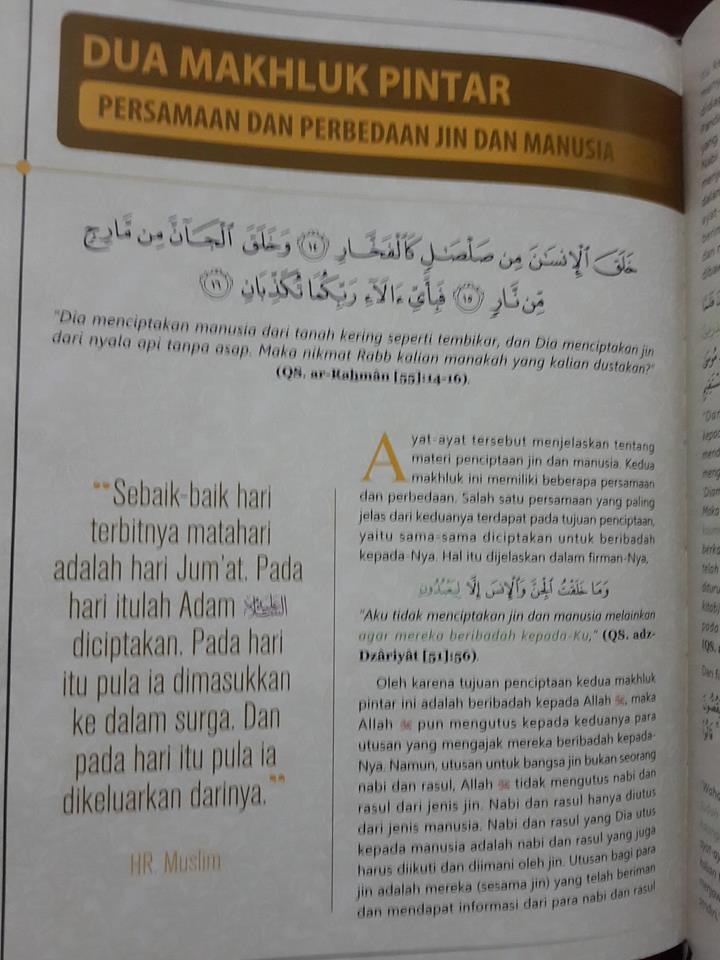 DUA MAKHLUK PINTAR
PERSAMAAN DAN PERBEDAAN JIN DAN MANUSIA
خَلَقَ ٱلْإِنسَٰنَ مِن صَلْصَٰلٍ كَٱلْفَخَّارِ ١٤ وَخَلَقَ ٱلْجَآنَّ مِن مَّارِجٍ
مِّن نَّارٍ ١٥ فَبِأَىِّ ءَالَآءِ رَبِّكُمَا تُكَذِّبَانِ ١٦
"Dia menciptakan manusia dari tanah kering seperti tembikar, dan Dia menciptakan jin
dari nyala api tanpa asap. Maka nikmat Rabb kalian manakah yang kalian dustakan?"
(QS. ar-Rahmân [55]:14-16).
"Sebaik-baik hari
terbitnya matahari
adalah hari Jum'at. Pada
hari itulah Adam
diciptakan. Pada hari
itu pula ia dimasukkan
ke dalam surga. Dan
pada hari itu pula ia
dikeluarkan darinya."
HR. Muslim
Ayat-ayat tersebut menjelaskan tentang
materi penciptaan jin dan manusia. Kedua
makhluk ini memiliki beberapa persamaan
dan perbedaan. Salah satu persamaan yang paling
jelas dari keduanya terdapat pada tujuan penciptaan,
yaitu sama-sama diciptakan untuk beribadah
kepada-Nya. Hal itu dijelaskan dalam firman-Nya,
وَمَا خَلَقْتُ ٱلْجِنَّ وَٱلْإِنسَ إِلَّا لِيَعْبُدُونِ
"Aku tidak menciptakan jin dan manusia melainkan
agar mereka beribadah kepada-Ku," (QS. adz-
Dzâriyât [51]:56).
Oleh karena tujuan penciptaan kedua makhluk
pintar ini adalah beribadah kepada Allah ﷻ, maka
Allah ﷻ pun mengutus kepada keduanya para
utusan yang mengajak mereka beribadah kepada-
Nya. Namun, utusan untuk bangsa jin bukan seorang
nabi dan rasul, Allah ﷻ tidak mengutus nabi dan
rasul dari jenis jin. Nabi dan rasul hanya diutus
dari jenis manusia. Nabi dan rasul yang Dia utus
kepada manusia adalah nabi dan rasul yang juga
harus diikuti dan diimani oleh jin. Utusan bagi para
jin adalah mereka (sesama jin) yang telah beriman
dan mendapat informasi dari para nabi dan rasul